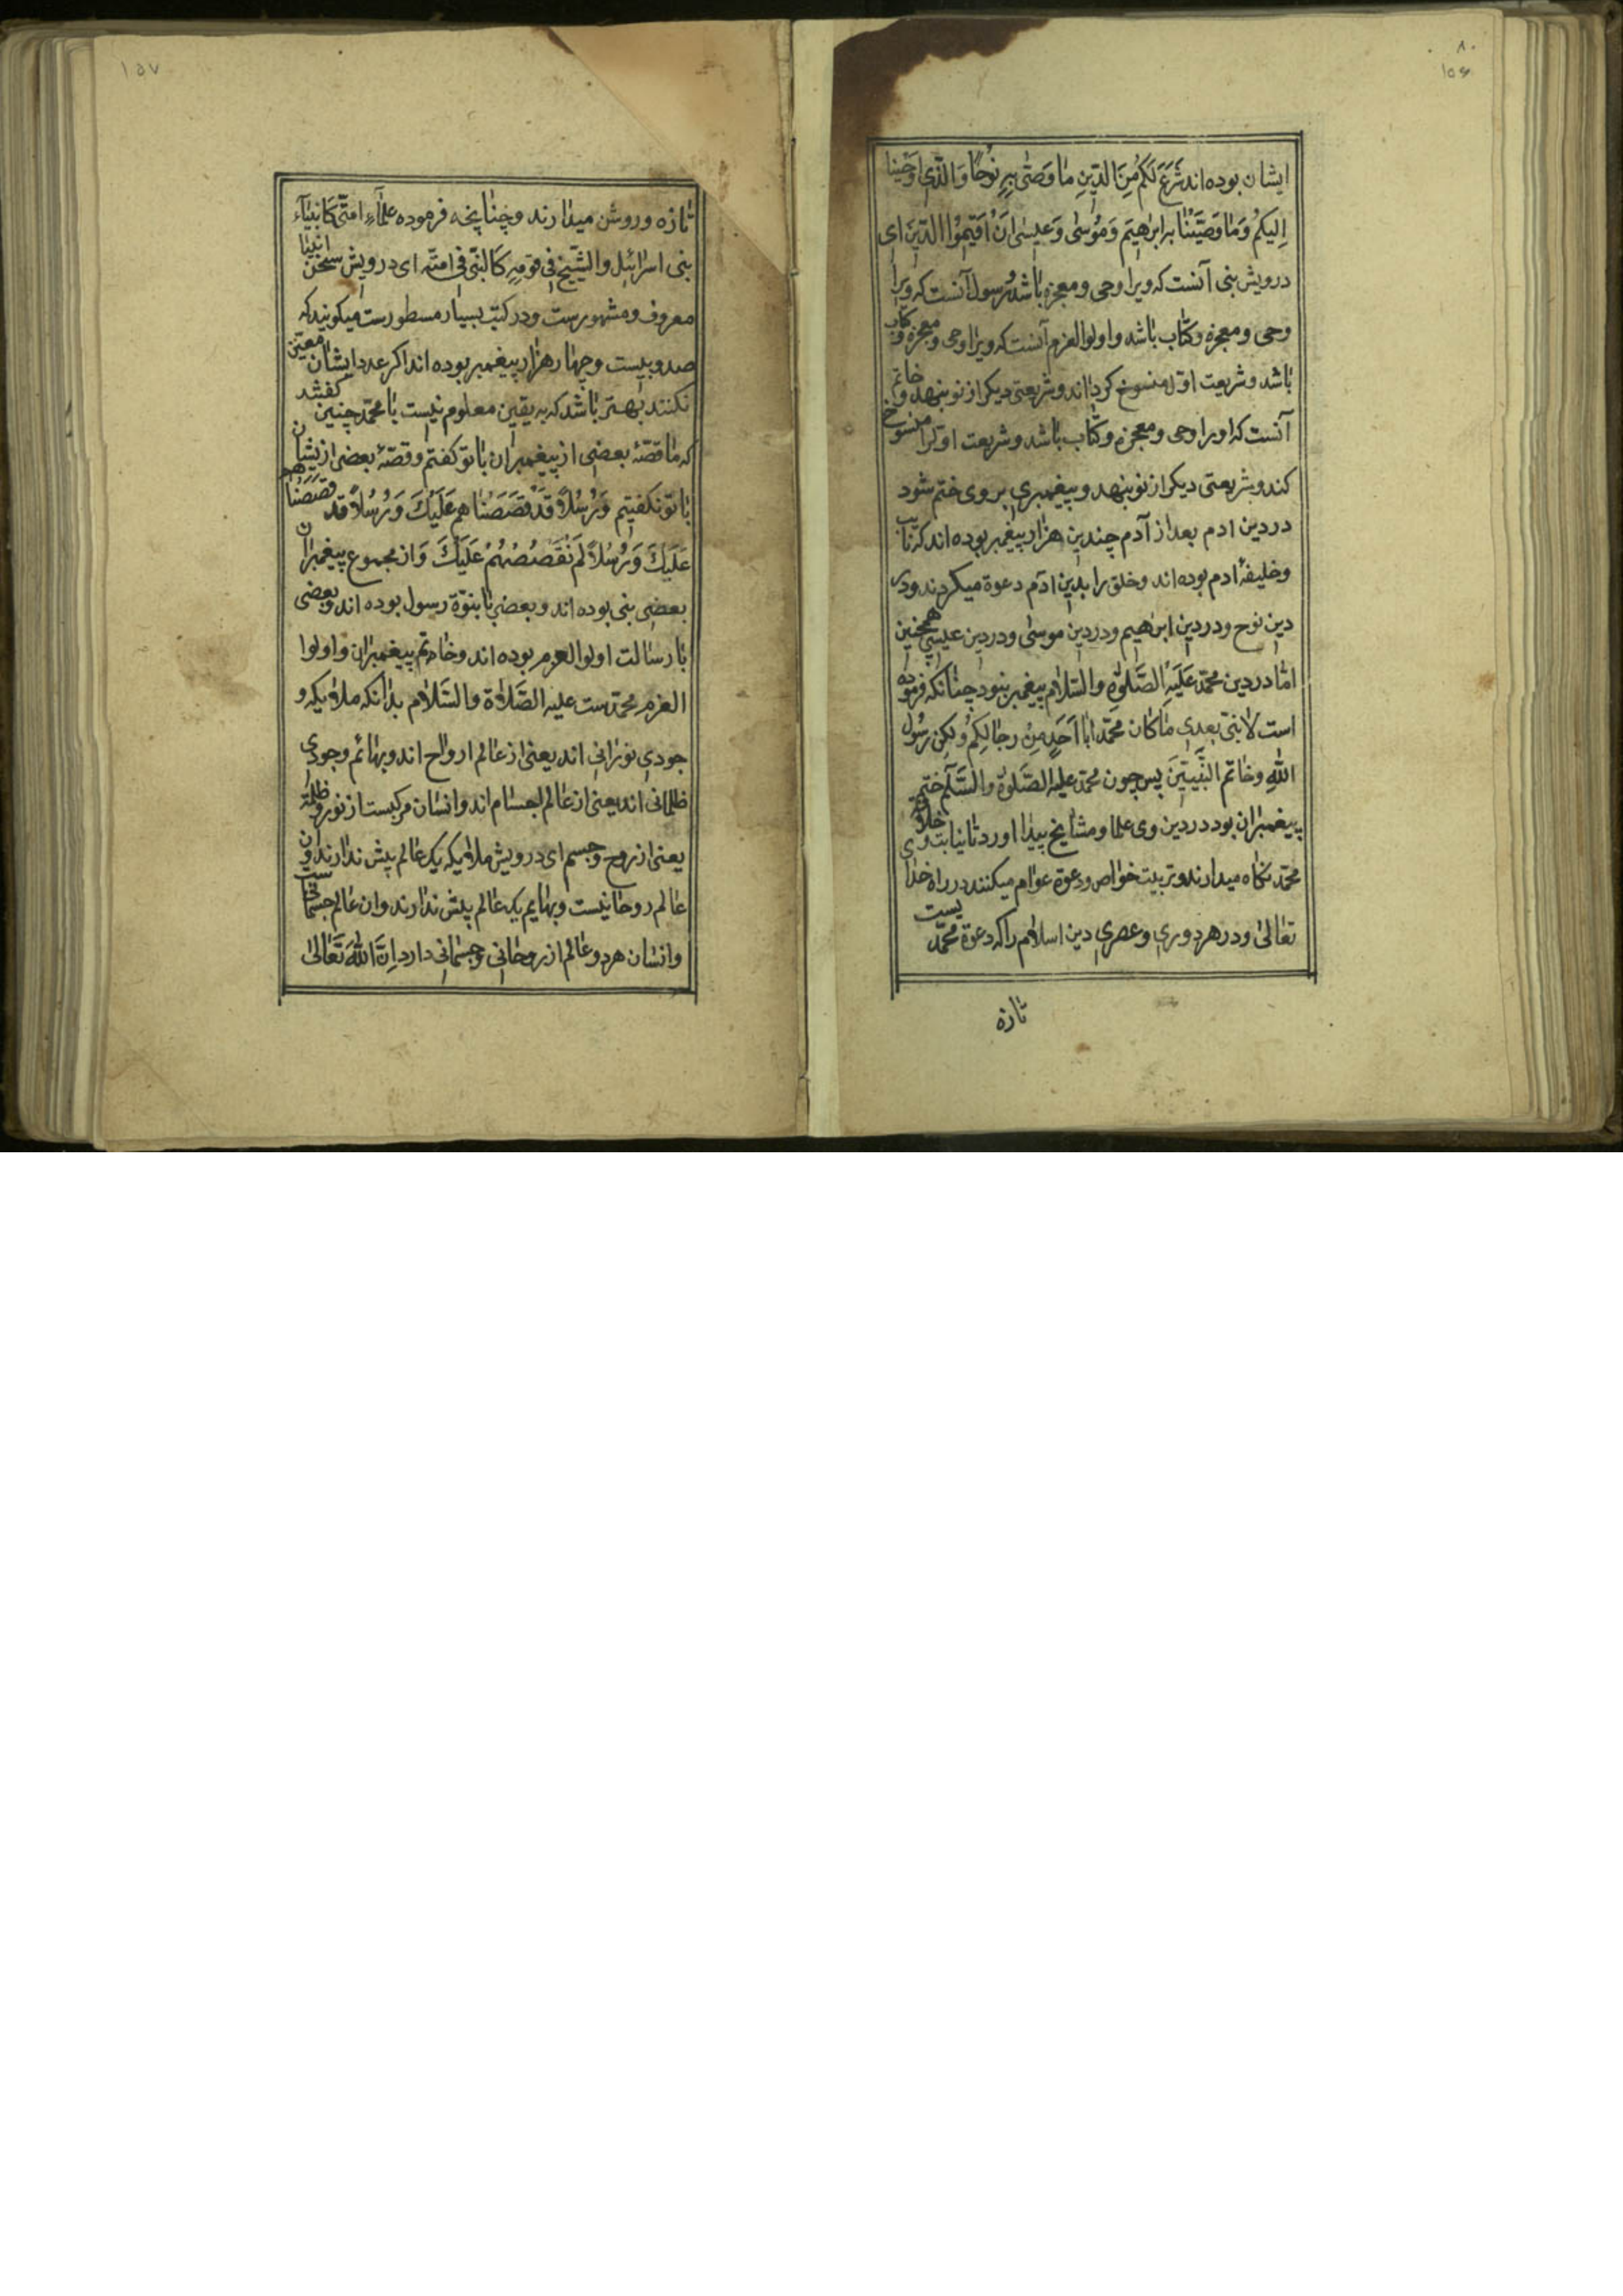 ۸۰
۱۵۶
ایشان بوده اند شَرَعَ لَكُم مِنَ الدّینِ مٰا وَصّٰی بِهِ نُوحًا وَالَّذی اَوحَینا
اِلَیكُم وَمٰا وَصَّینٰا به ابرٰهیم وَمُوسٰی وَعیسٰی اَنْ اَقیمُوا الدّینَ ای
درویش نبی آنست که ویرا وحی و معجزه باشد و رسول آنست که ویرا
وحی و معجزه و کتاب باشد و اولوا العزم آنست که ویرا وحی و معجزه و کتاب
باشد و شریعت اوّل منسوخ کرداند و شریعتی دیکر از نو بنهد و خاتم
آنست که اورا وحی و معجزه و کتاب باشد و شریعت اوّلرا منسوخ
کند و شریعتی دیکر از نو بنهد و پیغمبری بر وی ختم شود
در دین ادم بعد از آدم چندین هزار پیغمبر بوده اند که نایب
و خلیفهٔ ادم بوده اند و خلق را بدین ادم دعوة میکردند و در
دین نوح و در دین ابرهیم و در دین موسٰی و در دین عیسٰی همچنین
امّا در دین محمّد عَلَیهِ الصَّلوٰةِ والسّلام پیغمبر نبود چنانکه فرموده
است لا نبیّ بعدی مٰا کٰان محمّد اَبٰا اَحَدٍ مِنْ رجٰالِکُم وَلٰکِن رَسُول
اللّٰه و خاتم النَّبِیّینَ پس چون محمّد علیه الصَّلوٰة والسَّلٰم ختم
پیغمبران بود در دین وی علما و مشایخ پیدا اورد تا نیابت و خلافت وی
محمّد نکاه میدارند و تربیت خواص و دعوة عوام میکنند در راه خدا
تعالیٰ و در هر دوری و عصری دین اسلام را که دعوة محمّد یست
تازه
۱۵۷
تازه و روشن میدارند و چنانچه فرموده علمآء امّتی کانبیآء
بنی اسرائیل والشّیخ فی قومِه کَالنّبیّ فی امّتِه ای درویش سخن انبیا
معروف و مشهورست و در کتب بسیار مسطورست میکویند که
صد و بیست و چهار هزار پیغمبر بوده اند اکر عدد ایشان معیّن
نکنند بهتر باشد که به یقین معلوم نیست با محمّد چنین کفتند
که ما قصّهٔ بعضی از پیغمبران با تو کفتم و قصّهٔ بعضی ازیشان
با تو نکفتیم وَرُسُلاً قَدْ قَصَصنٰا هم عَلَیْكَ وَرُسُلاً قَد قَصَصنٰا هم
عَلَیكَ وَرُسُلاً لَم نَقْصُصْهُمْ عَلَیكَ وَاز مجموع پیغمبران
بعضی نبی بوده اند و بعضی با نبوّة رسول بوده اند و بعضی
با رسالت اولوا العزم بوده اند و خاتم پیغمبران و اولوا
العزم محمّدست علیه الصَّلاة والسَّلام بدانکه ملایکه و
جودی نورانی اند یعنی از عالم ارواح اند و بهائم وجودی
ظلمانی اند یعنی از عالم اجسام اند و انسان مرکبست از نور و ظلمة
یعنی از روح و جسم ای درویش ملایکه یک عالم پیش ندارند و ان
عالم روحانیست و بهایم یک عالم پیش ندارند و ان عالم جسمانیست
و انسان هر دو عالم از روحانی و جسمانی دارد اِنَّ اللّٰهَ تَعٰالیٰ